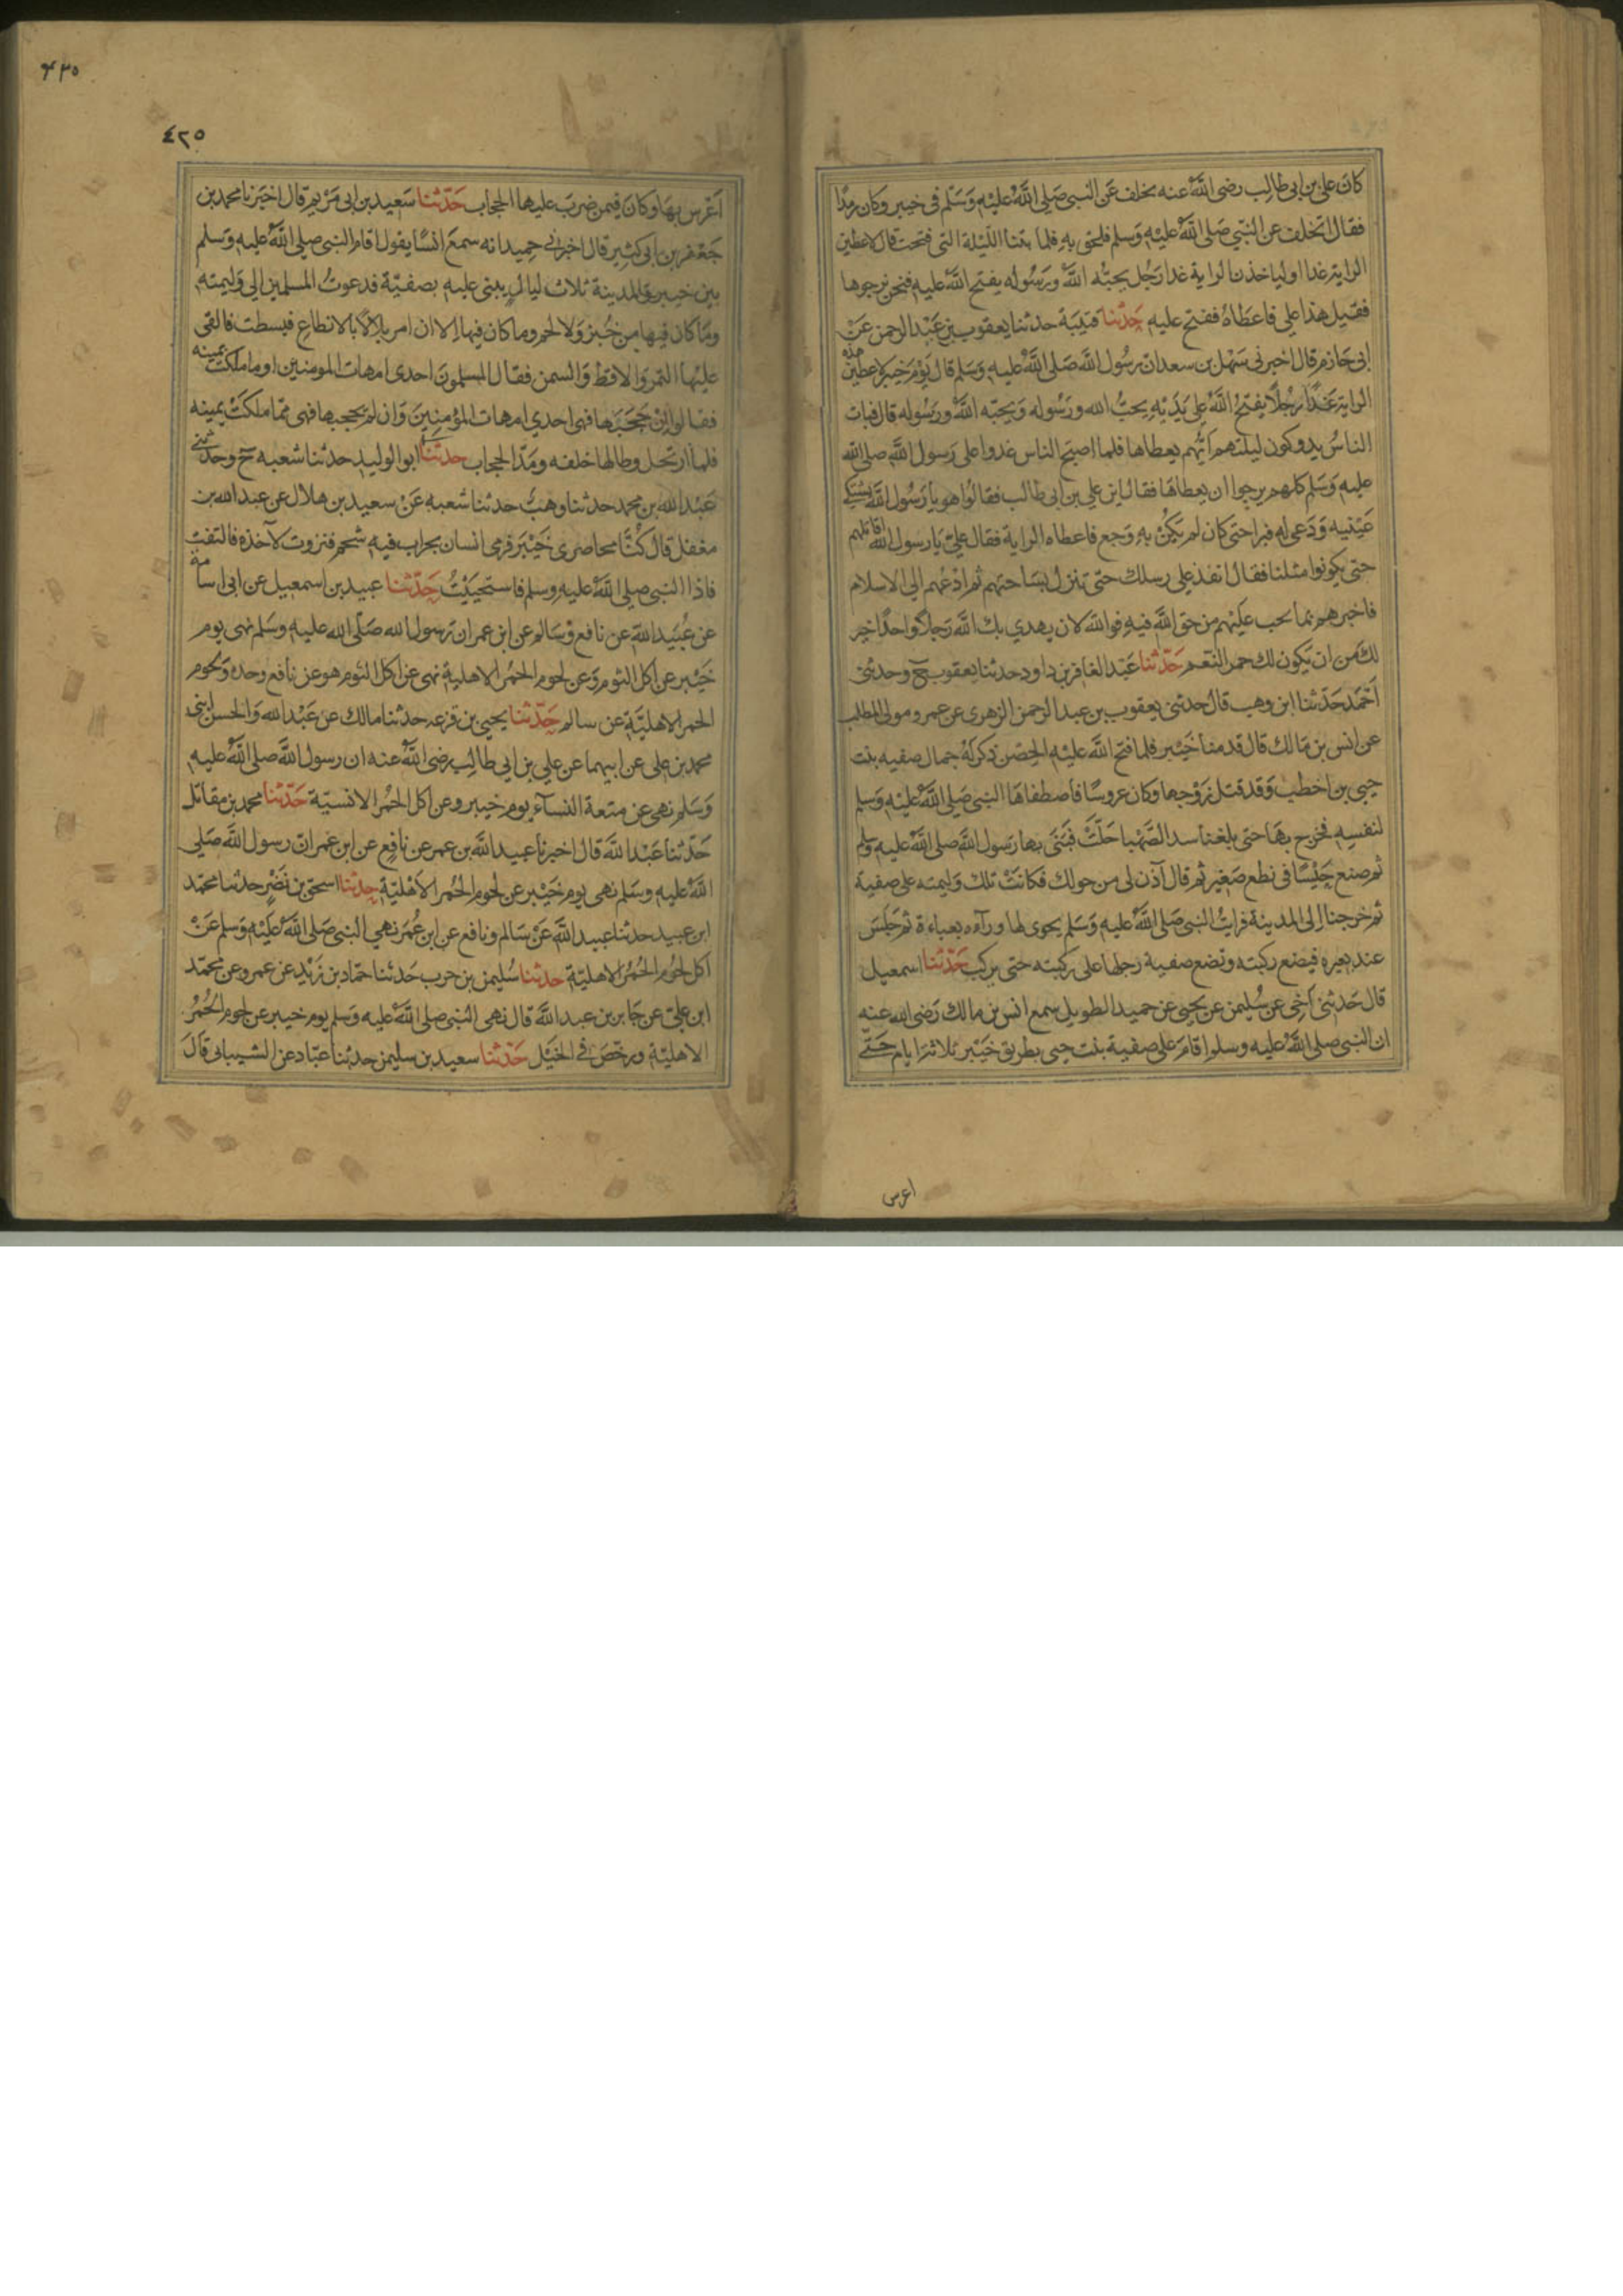 كان على بن ابى طالب رضى الله عنه تخلف عن النبى صلى الله عليه وسلم فى خيبر وكان رمدا
فقال اتخلف عن النبى صلى الله عليه وسلم فلحق به فلما بتنا الليلة التى فتحت قال لاعطين
الراية غدا اوليأخذن الراية غدا رجل يحبه الله ورسوله يفتح الله عليه فنحن نرجوها
فقيل هذا على فاعطاه ففتح عليه حدثنا قتيبة حدثنا يعقوب بن عبد الرحمن عن
ابى حازم قال اخبرنى سهل بن سعد ان رسول الله صلى الله عليه وسلم قال يوم خيبر لاعطين هذه
الراية غدا رجلا يفتح الله على يديه يحب الله ورسوله ويحبه الله ورسوله قال فبات
الناس يدوكون ليلتهم ايهم يعطاها فلما اصبح الناس غدوا على رسول الله صلى الله
عليه وسلم كلهم يرجوا ان يعطاها فقال اين على بن ابى طالب فقالوا هو يا رسول الله يشتكى
عينيه ودعى له فبرا حتى كان لم يكن به وجع فاعطاه الراية فقال على يا رسول الله اقاتلهم
حتى يكونوا مثلنا فقال انفذ على رسلك حتى تنزل بساحتهم ثم ادعهم الى الاسلام
فاخبرهم بما يجب عليهم من حق الله فيه فوالله لان يهدي بك الله رجلا واحدا خير
لك من ان يكون لك حمر النعم حدثنا عبد الغافر بن داود حدثنا يعقوب ح وحدثنى
احمد حدثنا ابن وهب قال حدثنى يعقوب بن عبد الرحمن الزهرى عن عمرو مولى المطلب
عن انس بن مالك قال قدمنا خيبر فلما فتح الله عليه الحصن ذكر له جمال صفيه بنت
حيى بن اخطب وقد قتل زوجها وكان عروسا فاصطفاها النبى صلى الله عليه وسلم
لنفسه فخرج بها حتى بلغنا سد الصهبا حلت فبنى بها رسول الله صلى الله عليه وسلم
ثم صنع حيسا فى نطع صغير ثم قال آذن لى من حولك فكانت تلك وليمته على صفية
ثم خرجنا الى المدينة فرايت النبى صلى الله عليه وسلم يحوى لها ورآءه بعباءة ثم جلس
عند بعيره فيضع ركبته وتضع صفية رجلها على ركبته حتى يركب حدثنا اسمعيل
قال حدثنى اخى عن سليمن عن يحيى عن حميد الطويل سمع انس بن مالك رضى الله عنه
ان النبى صلى الله عليه وسلم اقام على صفية بنت حيى بطريق خيبر ثلاثة ايام حتى
اعرس
٤٢٥
٤٢٥
اعرس بها وكان فيمن ضرب عليها الحجاب حدثنا سعيد بن ابى مريم قال اخبرنا محمد بن
جعفر بن ابى كثير قال اخبرنى حميد انه سمع انسا يقول اقام النبى صلى الله عليه وسلم
بين خيبر والمدينة ثلاث ليال يبنى عليه بصفية فدعوت المسلمين الى وليمته
وما كان فيها من خبز ولا لحم وما كان فيها الا ان امر بلالا بالانطاع فبسطت فالقى
عليها التمر والاقط والسمن فقال المسلمون احدى امهات المومنين او ما ملكت يمينه
فقالوا ان حجبها فهى احدي امهات المؤمنين وان لم يحجبها فهى مما ملكت يمينه
فلما ارتحل وطا لها خلفه ومد الحجاب حدثنا ابو الوليد حدثنا شعبه ح وحدثنى
عبد الله بن محمد حدثنا وهب حدثنا شعبه عن سعيد بن هلال عن عبد الله بن
مغفل قال كنا محاصرى خيبر فرمى انسان بجراب فيه شحم فنزوت لآخذه فالتفت
فاذا النبى صلى الله عليه وسلم فاستحييت حدثنا عبيد بن اسمعيل عن ابى اسامة
عن عبيد الله عن نافع وسالم عن ابن عمر ان رسول الله صلى الله عليه وسلم نهى يوم
خيبر عن اكل الثوم وعن لحوم الحمر الاهلية نهى عن اكل الثوم هو عن نافع وحده ولحوم
الحمر الاهلية عن سالم حدثنا يحيى بن قزعه حدثنا مالك عن عبد الله والحسن ابنى
محمد بن على عن ابيهما عن على بن ابى طالب رضى الله عنه ان رسول الله صلى الله عليه
وسلم نهى عن متعة النسآء يوم خيبر وعن اكل الحمر الانسية حدثنا محمد بن مقاتل
حدثنا عبد الله قال اخبرنا عبيد الله بن عمر عن نافع عن ابن عمر ان رسول الله صلى
الله عليه وسلم نهى يوم خيبر عن لحوم الحمر الاهلية حدثنا اسحق بن نضر حدثنا محمد
ابن عبيد حدثنا عبيد الله عن سالم ونافع عن ابن عمر نهي النبى صلى الله عليه وسلم عن
اكل لحوم الحمر الاهلية حدثنا سليمن بن حرب حدثنا حماد بن زيد عن عمرو عن محمد
ابن على عن جابر بن عبد الله قال نهى النبى صلى الله عليه وسلم يوم خيبر عن لحوم الحمر
الاهلية ورخص فى الخيل حدثنا سعيد بن سليمن حدثنا عباد عن الشيبانى قال